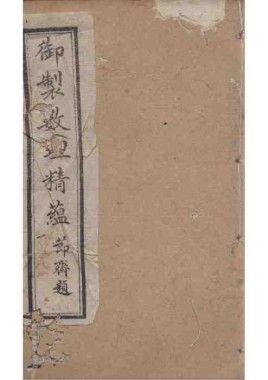 御製數理精蘊
節齋題